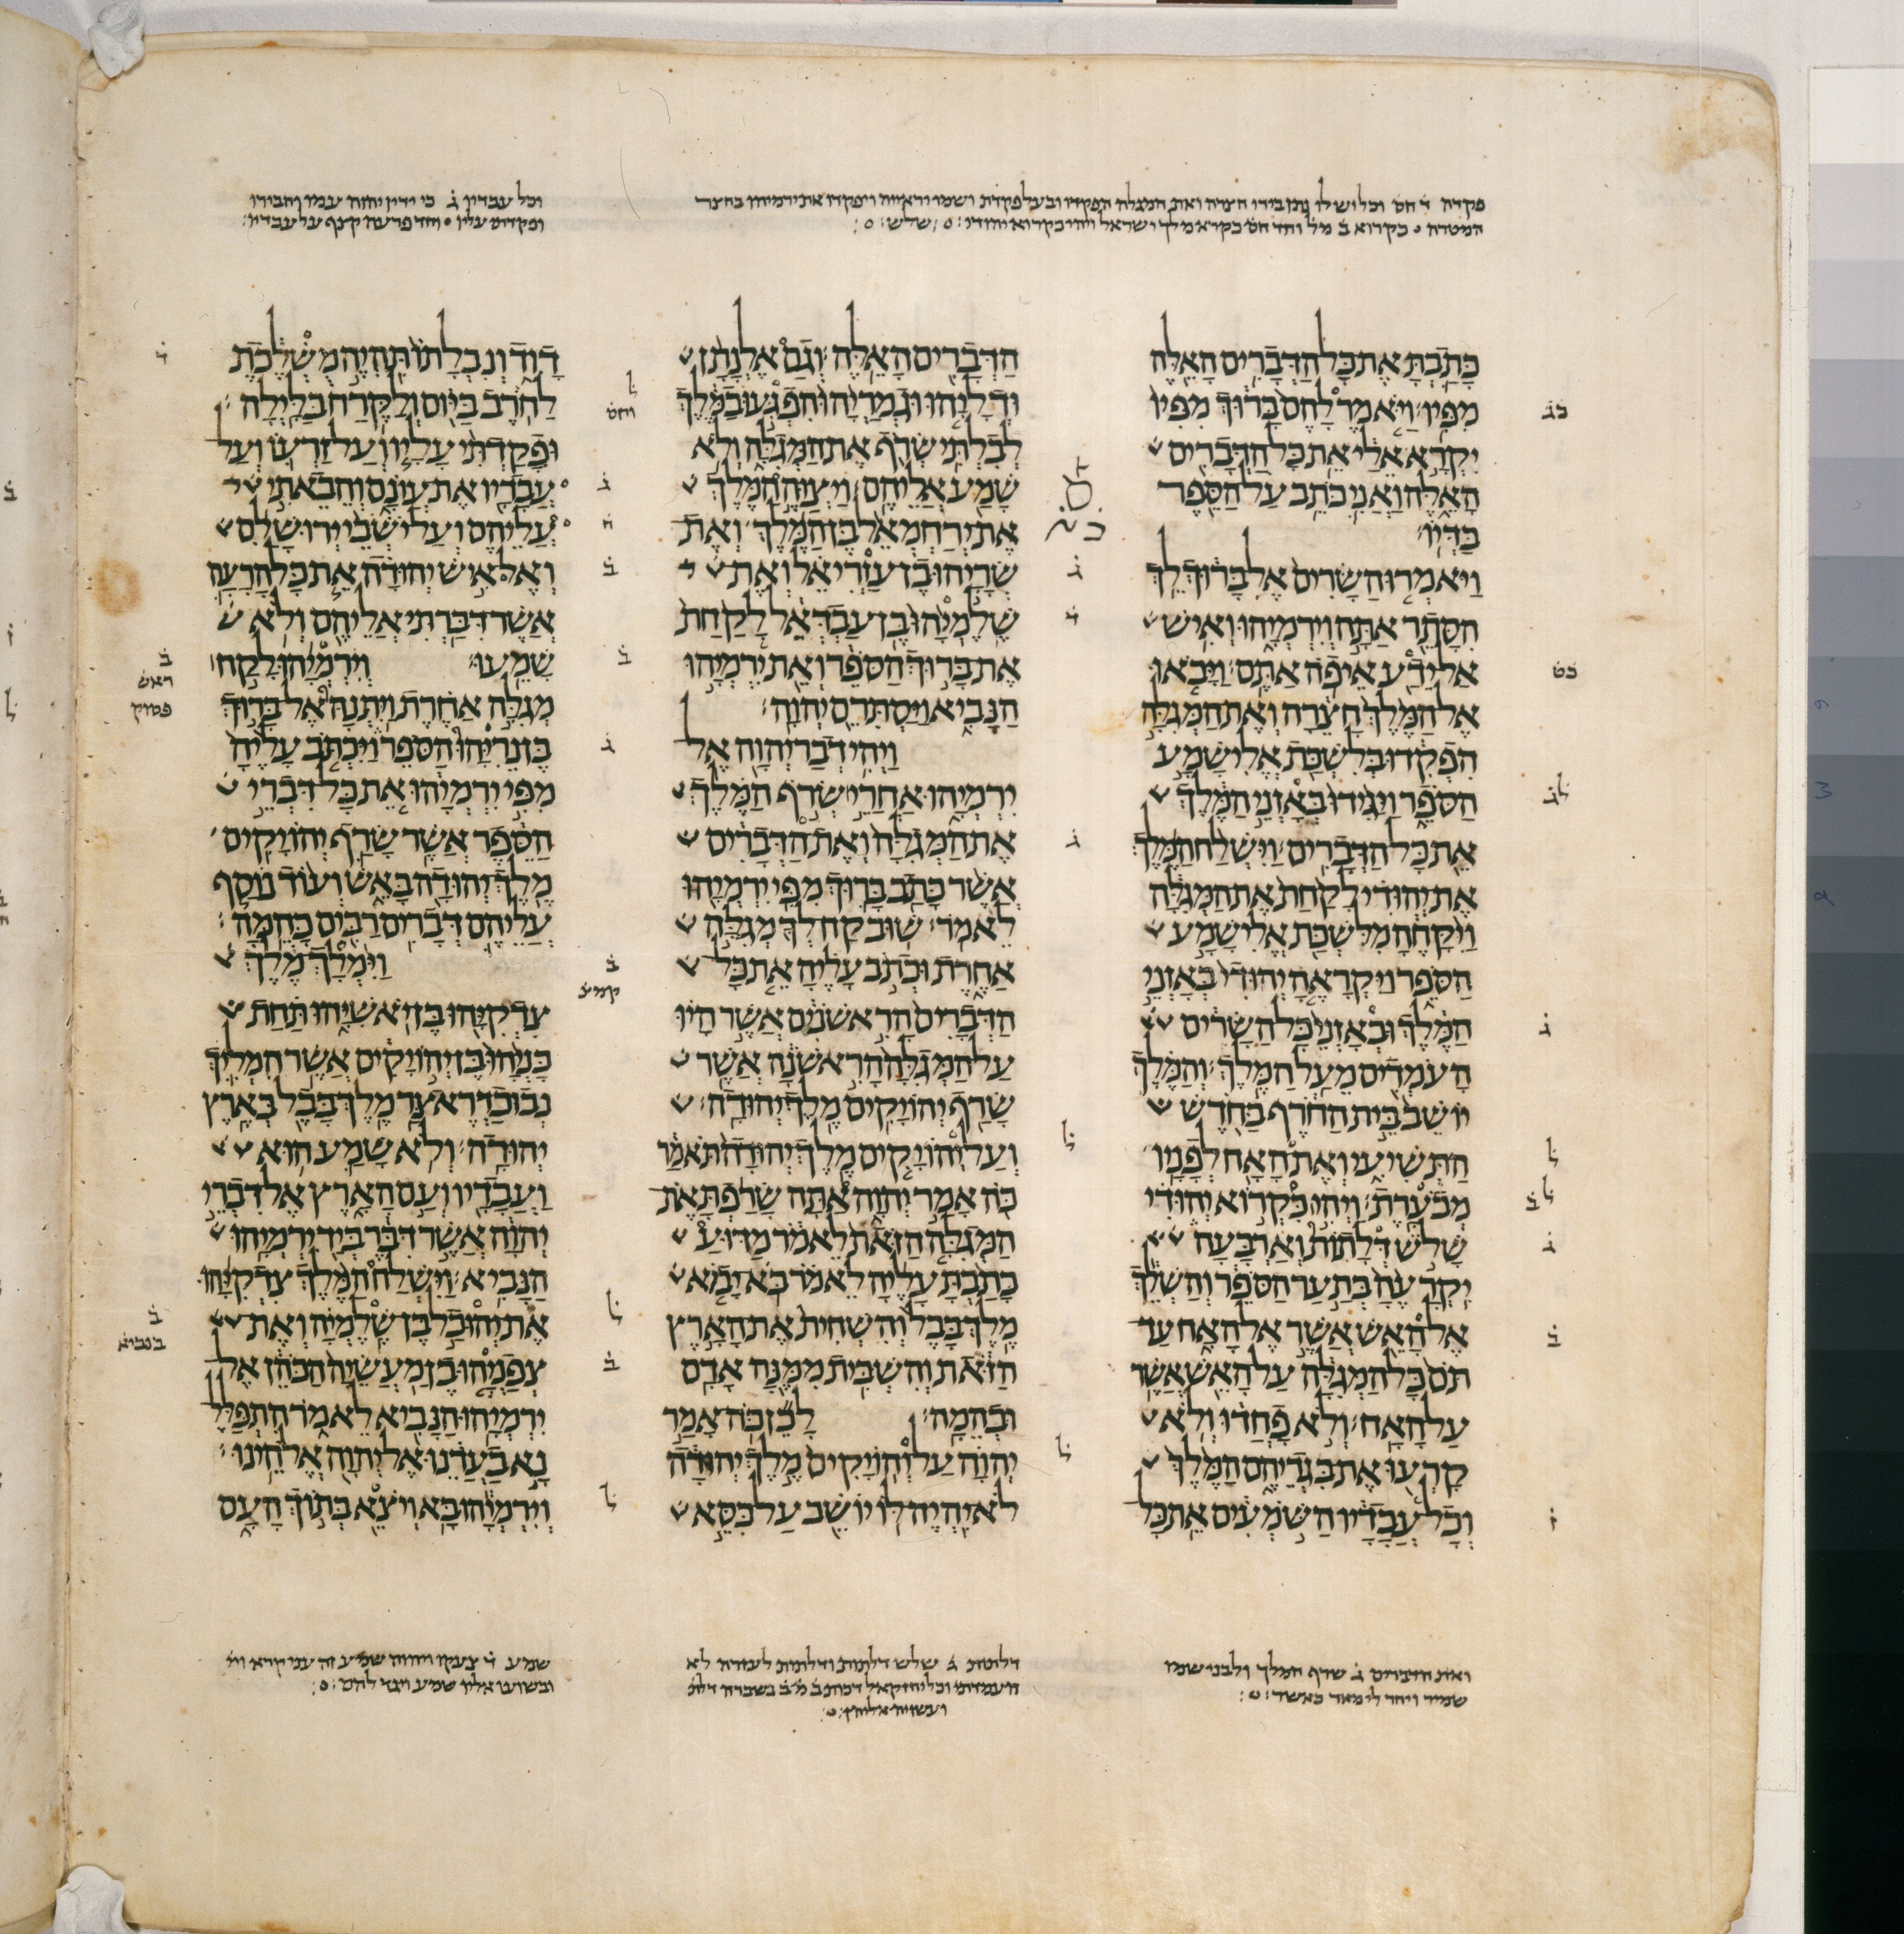 המטרה בקרוא ב מל וחד חס בקרא מלך ישראל ויהי כקרוא יהודי שלש
וכל עבדיו ג כי ידין יהוה עמו וחבירו
כתבת את כל הדברים האלה
מפיו ויאמר להם ברוך מפיו
יקרא אלי את כל הדברים
האלה ואני כתב על הספר
בדיו
ויאמרו השרים אל ברוך לך
הסתר אתה וירמיהו ואיש
אל ידע איפה אתם ויבאו
אל המלך חצרה ואת המגלה
הפקדו בלשכת אלישמע
הספר ויגידו באזני המלך
את כל הדברים וישלח המלך
את יהודי לקחת את המגלה
ויקחה מלשכת אלישמע
הספר ויקראה יהודי באזני
המלך ובאזני כל השרים
העמדים מעל המלך והמלך
יושב בית החרף בחדש
התשיעי ואת האח לפניו
מבערת ויהי כקרוא יהודי
שלש דלתות וארבעה
יקרעה בתער הספר והשלך
אל האש אשר אל האח עד
תם כל המגלה על האש אשר
על האח ולא פחדו ולא
קרעו את בגדיהם המלך
וכל עבדיו השמעים את כל
הדברים האלה וגם אלנתן
ודליהו וגמריהו הפגעו במלך
לבלתי שרף את המגלה ולא
שמע אליהם ויצוה המלך
את ירחמאל בן המלך ואת
שריהו בן עזריאל ואת
שלמיהו בן עבדאל לקחת
את ברוך הספר ואת ירמיהו
הנביא ויסתרם יהוה
ויהי דבר יהוה אל
ירמיהו אחרי שרף המלך
את המגלה ואת הדברים
אשר כתב ברוך מפי ירמיהו
לאמר שוב קח לך מגלה
אחרת וכתב עליה את כל
הדברים הראשנים אשר היו
על המגלה הראשנה אשר
שרף יהויקים מלך יהודה
ועל יהויקים מלך יהודה תאמר
כה אמר יהוה אתה שרפת את
המגלה הזאת לאמר מדוע
כתבת עליה לאמר בא יבוא
מלך בבל והשחית את הארץ
הזאת והשבית ממנה אדם
ובהמה לכן כה אמר
יהוה על יהויקים מלך יהודה
לא יהיה לו יושב על כסא
דוד ונבלתו תהיה משלכת
לחרב ביום ולקרח בלילה
ופקדתי עליו ועל זרעו ועל
עבדיו את עונם והבאתי
עליהם ועל ישבי ירושלם
ואל איש יהודה את כל הרעה
אשר דברתי אליהם ולא
שמעו וירמיהו לקח
מגלה אחרת ויתנה אל ברוך
בן נריהו הספר ויכתב עליה
מפי ירמיהו את כל דברי
הספר אשר שרף יהויקים
מלך יהודה באש ועוד נוסף
עליהם דברים רבים כהמה
וימלך מלך
צדקיהו בן יאשיהו תחת
כניהו בן יהויקים אשר המליך
נבוכדראצר מלך בבל בארץ
יהודה ולא שמע הוא
ועבדיו ועם הארץ אל דברי
יהוה אשר דבר ביד ירמיהו
הנביא וישלח המלך צדקיהו
את יהוכל בן שלמיה ואת
צפניהו בן מעשיה הכהן אל
ירמיהו הנביא לאמר התפלל
נא בעדנו אל יהוה אלהינו
וירמיהו בא ויצא בתוך העם
ואת הדברים ג שרף המלך
דלתות ג שלש דלתות ודלתות לעזרה לא
שמע ד צעקו ויהוה שמע זה עני קרא ויי